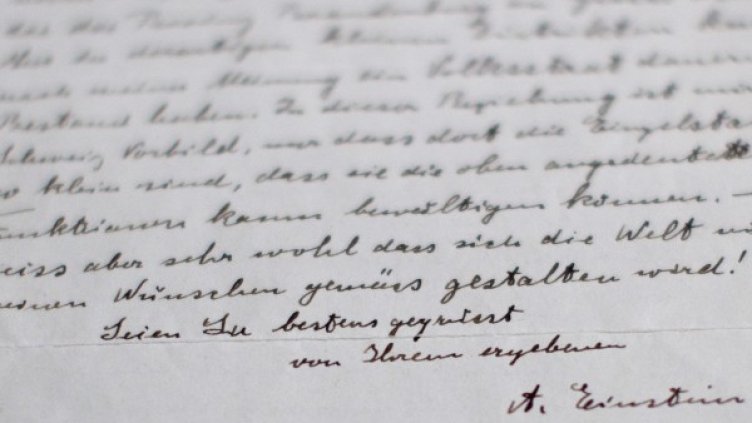 das das
aus
nach meiner Meinung ein Volksstaat dauern
Bestand haben. In dieser Beziehung ist mir
Schweiz Vorbild, nur dass dort die Einzelsta
so klein sind, dass sie die oben angedeutete
Funktionen kaum bewältigen können. –
weiss aber sehr wohl dass sich die Welt ni
meinen Wünschen gemäss gestalten wird!
Seien Sie bestens gegrüsst
von Ihrem ergebenen
A. Einstein